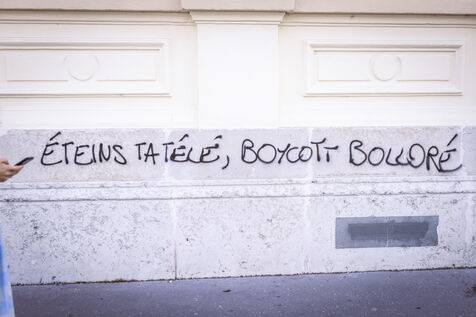 ÉTEINS TA TÉLÉ, BOYCOTT BOLLORÉ